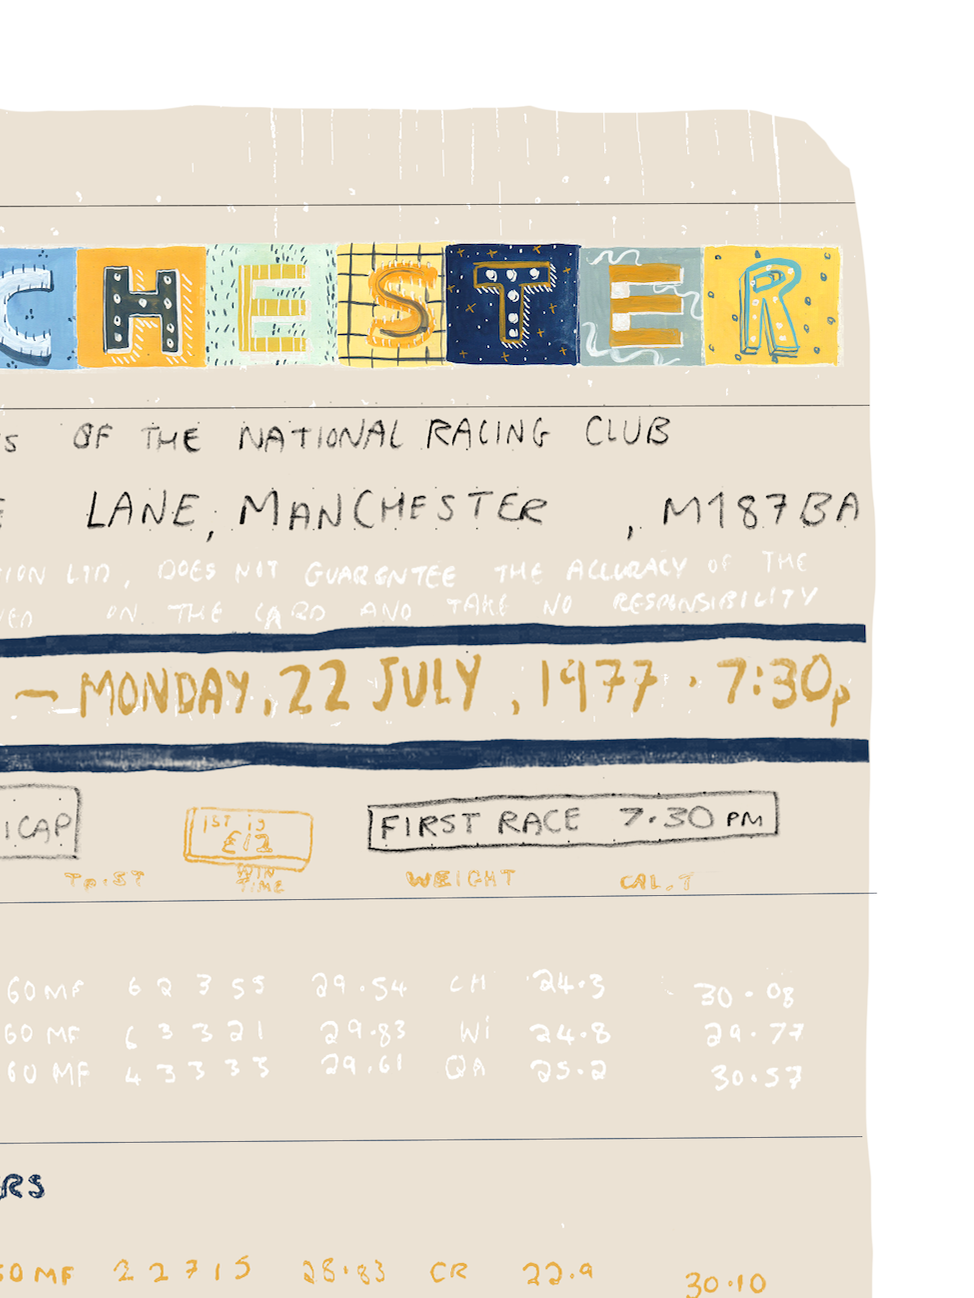 CHESTER
OF THE NATIONAL RACING CLUB
LANE, MANCHESTER , M187BA
ION LTD, DOES NOT GUARENTEE THE ACCURACY OF THE
ON THE CARD AND TAKE NO RESPONSIBILITY
— MONDAY, 22 JULY, 1977 · 7:30p
ICAP
1ST is £12
FIRST RACE 7·30 PM
WIN TIME WEIGHT CAL.T
60MF 6 2 3 5 5 29·54 CH 24·3 30·08
60 MF 6 3 3 2 1 29·83 Wi 24·8 29·77
60 MF 4 3 3 3 3 29.61 QA 25·2 30·57
RS
60MF 2 2 7 1 5 28·83 CR 22·9 30·10